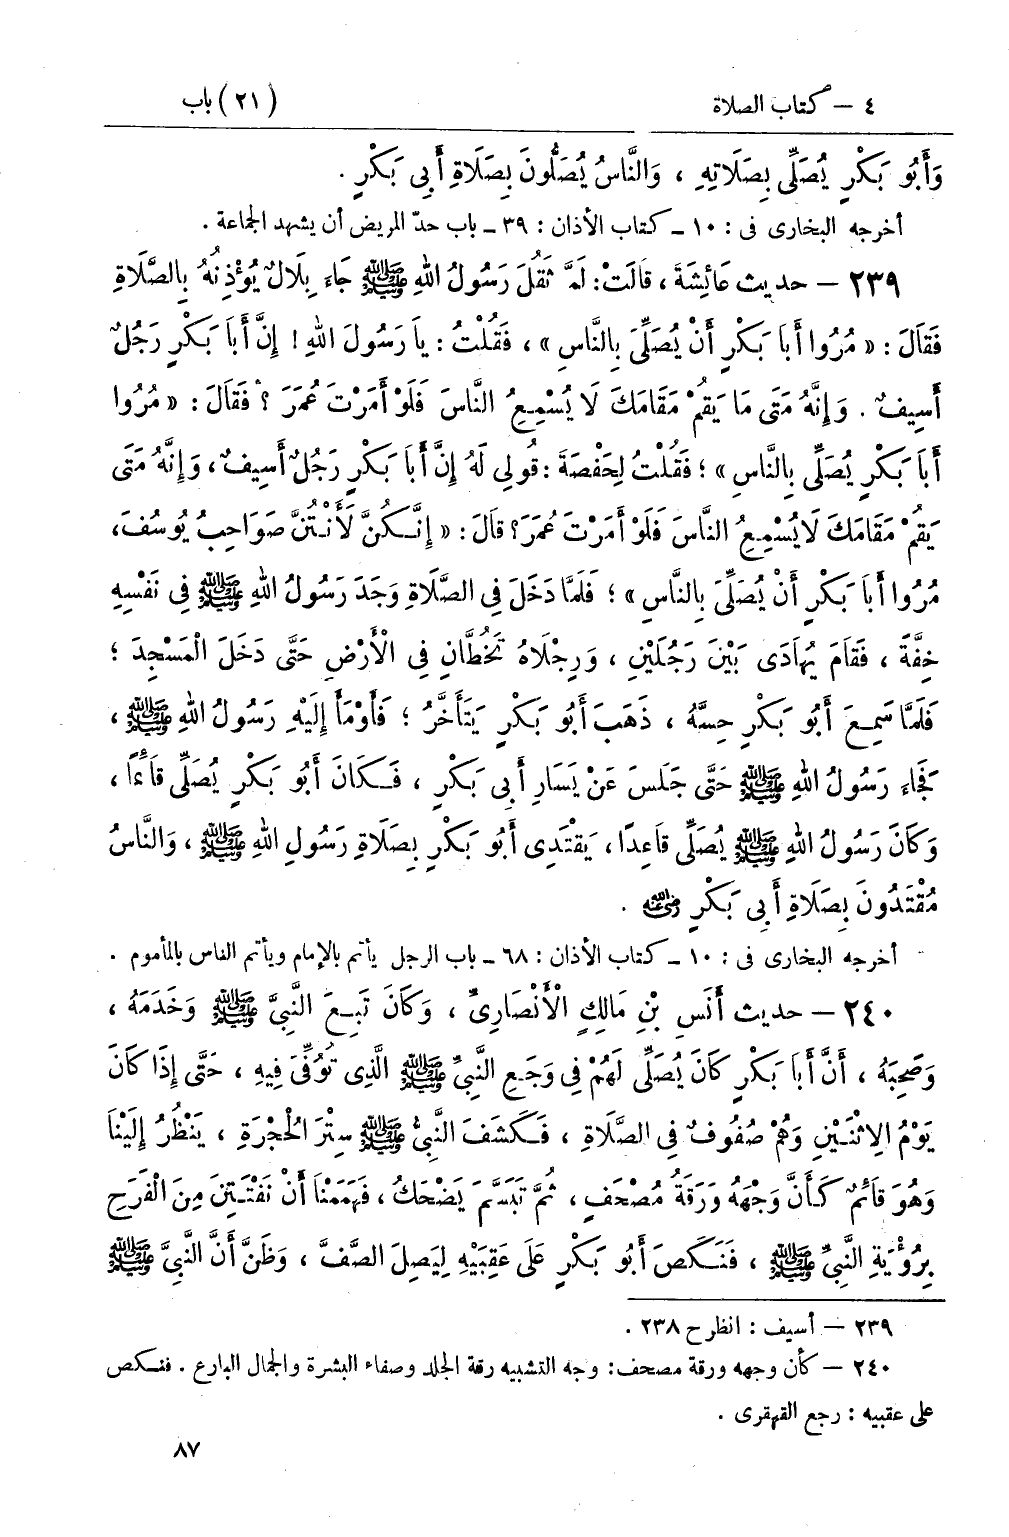 ٤ — كتاب الصلاة (٢١) باب
وَأَبُو بَكْرٍ يُصَلِّى بِصَلَاتِهِ ، وَالنَّاسُ يُصَلُّونَ بِصَلَاةِ أَبِى بَكْرٍ .
أخرجه البخارى فى : ١٠ ـ كتاب الأذان : ٣٩ ـ باب حدّ المريض أن يشهد الجماعة .
٢٣٩ — حديث عَائِشَةَ ، قَالَتْ : لَمَّا ثَقُلَ رَسُولُ اللهِ ﷺ جَاءَ بِلَالٌ يُؤْذِنُهُ بِالصَّلَاةِ
فَقَالَ : « مُرُوا أَبَا بَكْرٍ أَنْ يُصَلِّىَ بِالنَّاسِ » ، فَقُلْتُ : يَا رَسُولَ اللهِ ! إِنَّ أَبَا بَكْرٍ رَجُلٌ
أَسِيفٌ . وَإِنَّهُ مَتَى مَا يَقُمْ مَقَامَكَ لَا يُسْمِعُ النَّاسَ فَلَوْ أَمَرْتَ عُمَرَ ؟ فَقَالَ : « مُرُوا
أَبَا بَكْرٍ يُصَلِّى بِالنَّاسِ » ؛ فَقُلْتُ لِحَفْصَةَ : قُولِى لَهُ إِنَّ أَبَا بَكْرٍ رَجُلٌ أَسِيفٌ ، وَإِنَّهُ مَتَى
يَقُمْ مَقَامَكَ لَا يُسْمِعُ النَّاسَ فَلَوْ أَمَرْتَ عُمَرَ ؟ قَالَ : « إِنَّكُنَّ لَأَنْتُنَّ صَوَاحِبُ يُوسُفَ ،
مُرُوا أَبَا بَكْرٍ أَنْ يُصَلِّىَ بِالنَّاسِ » ؛ فَلَمَّا دَخَلَ فِى الصَّلَاةِ وَجَدَ رَسُولُ اللهِ ﷺ فِى نَفْسِهِ
خِفَّةً ، فَقَامَ يُهَادَى بَيْنَ رَجُلَيْنِ ، وَرِجْلَاهُ تَخُطَّانِ فِى الْأَرْضِ حَتَّى دَخَلَ الْمَسْجِدَ ؛
فَلَمَّا سَمِعَ أَبُو بَكْرٍ حِسَّهُ ، ذَهَبَ أَبُو بَكْرٍ يَتَأَخَّرُ ؛ فَأَوْمَأَ إِلَيْهِ رَسُولُ اللهِ ﷺ ،
فَجَاءَ رَسُولُ اللهِ ﷺ حَتَّى جَلَسَ عَنْ يَسَارِ أَبِى بَكْرٍ ، فَكَانَ أَبُو بَكْرٍ يُصَلِّى قَائِمًا ،
وَكَانَ رَسُولُ اللهِ ﷺ يُصَلِّى قَاعِدًا ، يَقْتَدِى أَبُو بَكْرٍ بِصَلَاةِ رَسُولِ اللهِ ﷺ ، وَالنَّاسُ
مُقْتَدُونَ بِصَلَاةِ أَبِى بَكْرٍ رضي الله عنه .
أخرجه البخارى فى : ١٠ ـ كتاب الأذان : ٦٨ ـ باب الرجل يأتم بالإمام ويأتم الناس بالمأموم .
٢٤٠ — حديث أَنَسِ بْنِ مَالِكٍ الْأَنْصَارِىِّ ، وَكَانَ تَبِعَ النَّبِىَّ ﷺ وَخَدَمَهُ ،
وَصَحِبَهُ ، أَنَّ أَبَا بَكْرٍ كَانَ يُصَلِّى لَهُمْ فِى وَجَعِ النَّبِىِّ ﷺ الَّذِى تُوُفِّىَ فِيهِ ، حَتَّى إِذَا كَانَ
يَوْمُ الِاثْنَيْنِ وَهُمْ صُفُوفٌ فِى الصَّلَاةِ ، فَكَشَفَ النَّبِىُّ ﷺ سِتْرَ الْحُجْرَةِ ، يَنْظُرُ إِلَيْنَا
وَهُوَ قَائِمٌ كَأَنَّ وَجْهَهُ وَرَقَةُ مُصْحَفٍ ، ثُمَّ تَبَسَّمَ يَضْحَكُ ، فَهَمَمْنَا أَنْ نَفْتَتِنَ مِنَ الْفَرَحِ
بِرُؤْيَةِ النَّبِىِّ ﷺ ، فَنَكَصَ أَبُو بَكْرٍ عَلَى عَقِبَيْهِ لِيَصِلَ الصَّفَّ ، وَظَنَّ أَنَّ النَّبِىَّ ﷺ
٢٣٩ — أسيف : انظر ح ٢٣٨ .
٢٤٠ — كأن وجهه ورقة مصحف : وجه التشبيه رقة الجلد وصفاء البشرة والجمال البارع . فنكص
على عقبيه : رجع القهقرى .
٨٧